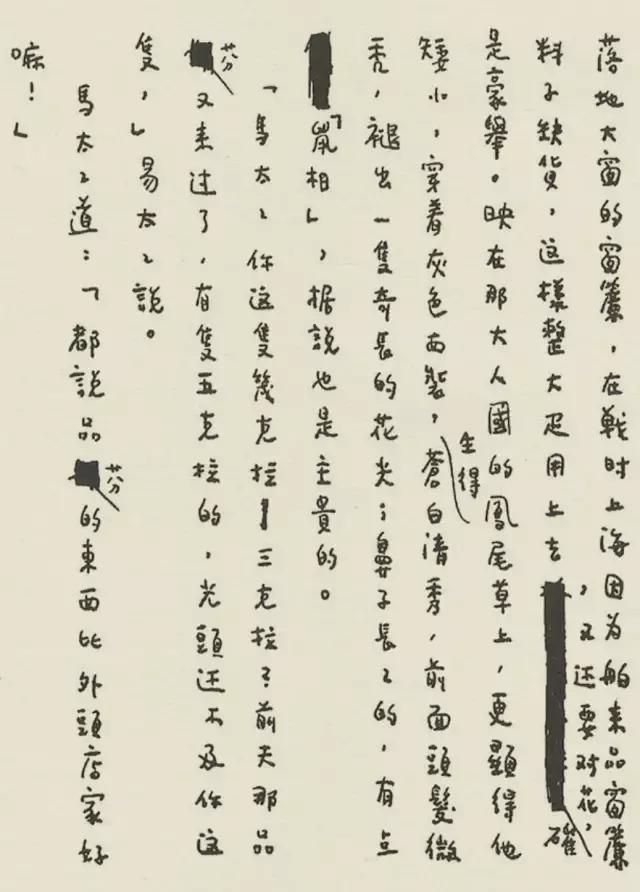 落地大窗的窗簾，在戰时上海因为舶来品窗簾
料子缺貨，这樣整大疋用上去，又还要对花，確
是豪舉。映在那大人國的鳳尾草上，更顯得他
矮小，穿着灰色西裝，生得蒼白清秀，前面頭髮微
禿，褪出一隻奇長的花尖；鼻子長〻的，有点
「鼠相」，据說也是主貴的。
「馬太〻你这隻幾克拉——三克拉？前天那品
芬又来过了，有隻五克拉的，光頭还不及你这
隻，」易太〻說。
馬太〻道：「都說品芬的東西比外頭店家好
嘛！」